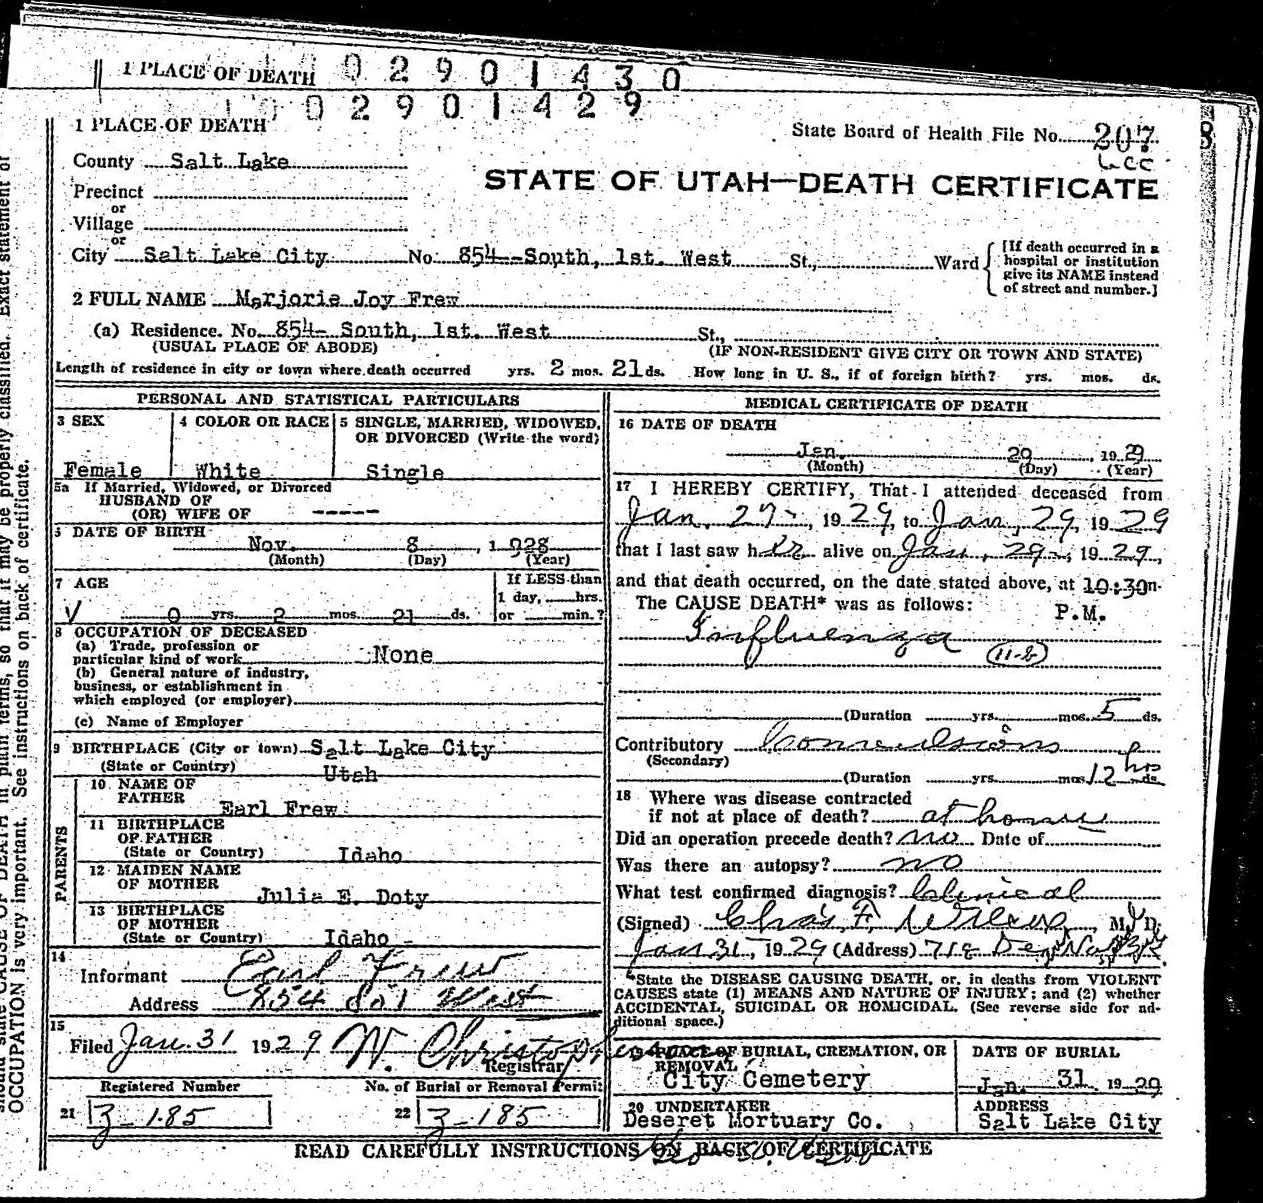 1 PLACE OF DEATH 0 2 9 0 1 4 3 0
1 0 0 2 9 0 1 4 2 9
1 PLACE OF DEATH
State Board of Health File No. 207
County Salt Lake
Precinct
or
Village
or
STATE OF UTAH—DEATH CERTIFICATE
City Salt Lake City No. 854--South, 1st. West St., Ward
[If death occurred in a
hospital or institution
give its NAME instead
of street and number.]
2 FULL NAME Marjorie Joy Frew
(a) Residence. No. 854- South, 1st. West St.,
(USUAL PLACE OF ABODE) (IF NON-RESIDENT GIVE CITY OR TOWN AND STATE)
Length of residence in city or town where death occurred yrs. 2 mos. 21 ds. How long in U. S., if of foreign birth? yrs. mos. ds.
PERSONAL AND STATISTICAL PARTICULARS
3 SEX 4 COLOR OR RACE 5 SINGLE, MARRIED, WIDOWED,
OR DIVORCED (Write the word)
Female White Single
5a If Married, Widowed, or Divorced
HUSBAND OF
(OR) WIFE OF -----
DATE OF BIRTH
Nov. 8, 1928
(Month) (Day) (Year)
7 AGE If LESS than
1 day, hrs.
0 yrs. 2 mos. 21 ds. or min.?
8 OCCUPATION OF DECEASED
(a) Trade, profession or
particular kind of work None
(b) General nature of industry,
business, or establishment in
which employed (or employer)
(c) Name of Employer
9 BIRTHPLACE (City or town) Salt Lake City
(State or Country) Utah
PARENTS
10 NAME OF
FATHER Earl Frew
11 BIRTHPLACE
OF FATHER
(State or Country) Idaho
12 MAIDEN NAME
OF MOTHER Julia E. Doty
13 BIRTHPLACE
OF MOTHER
(State or Country) Idaho
14
Informant Earl Frew
Address 854 So 1 West
15
Filed Jan. 31 1929 W. Christopherson
Registrar
Registered Number No. of Burial or Removal Permit
21 3-185 22 3-185
MEDICAL CERTIFICATE OF DEATH
16 DATE OF DEATH
Jan. 29, 1929
(Month) (Day) (Year)
17 I HEREBY CERTIFY, That I attended deceased from
Jan. 27-, 1929, to Jan, 29, 1929
that I last saw her alive on Jan, 29-, 1929,
and that death occurred, on the date stated above, at 10:30
The CAUSE DEATH* was as follows: P.M.
Influenza
(Duration yrs. mos. 5 ds.
Contributory Convulsions
(Secondary)
(Duration yrs. mos. 12 hrs ds.
18 Where was disease contracted
if not at place of death? at home
Did an operation precede death? no Date of
Was there an autopsy? no
What test confirmed diagnosis? Clinical
(Signed) Chas. F. Wilcox, M. D.
Jan 31, 1929 (Address)
*State the DISEASE CAUSING DEATH, or, in deaths from VIOLENT
CAUSES state (1) MEANS AND NATURE OF INJURY; and (2) whether
ACCIDENTAL, SUICIDAL OR HOMICIDAL. (See reverse side for ad-
ditional space.)
19 PLACE OF BURIAL, CREMATION, OR
REMOVAL
City Cemetery
DATE OF BURIAL
Jan. 31 1929
20 UNDERTAKER
Deseret Mortuary Co.
ADDRESS
Salt Lake City
READ CAREFULLY INSTRUCTIONS ON BACK OF CERTIFICATE
OCCUPATION is very important. See instructions on back of certificate.